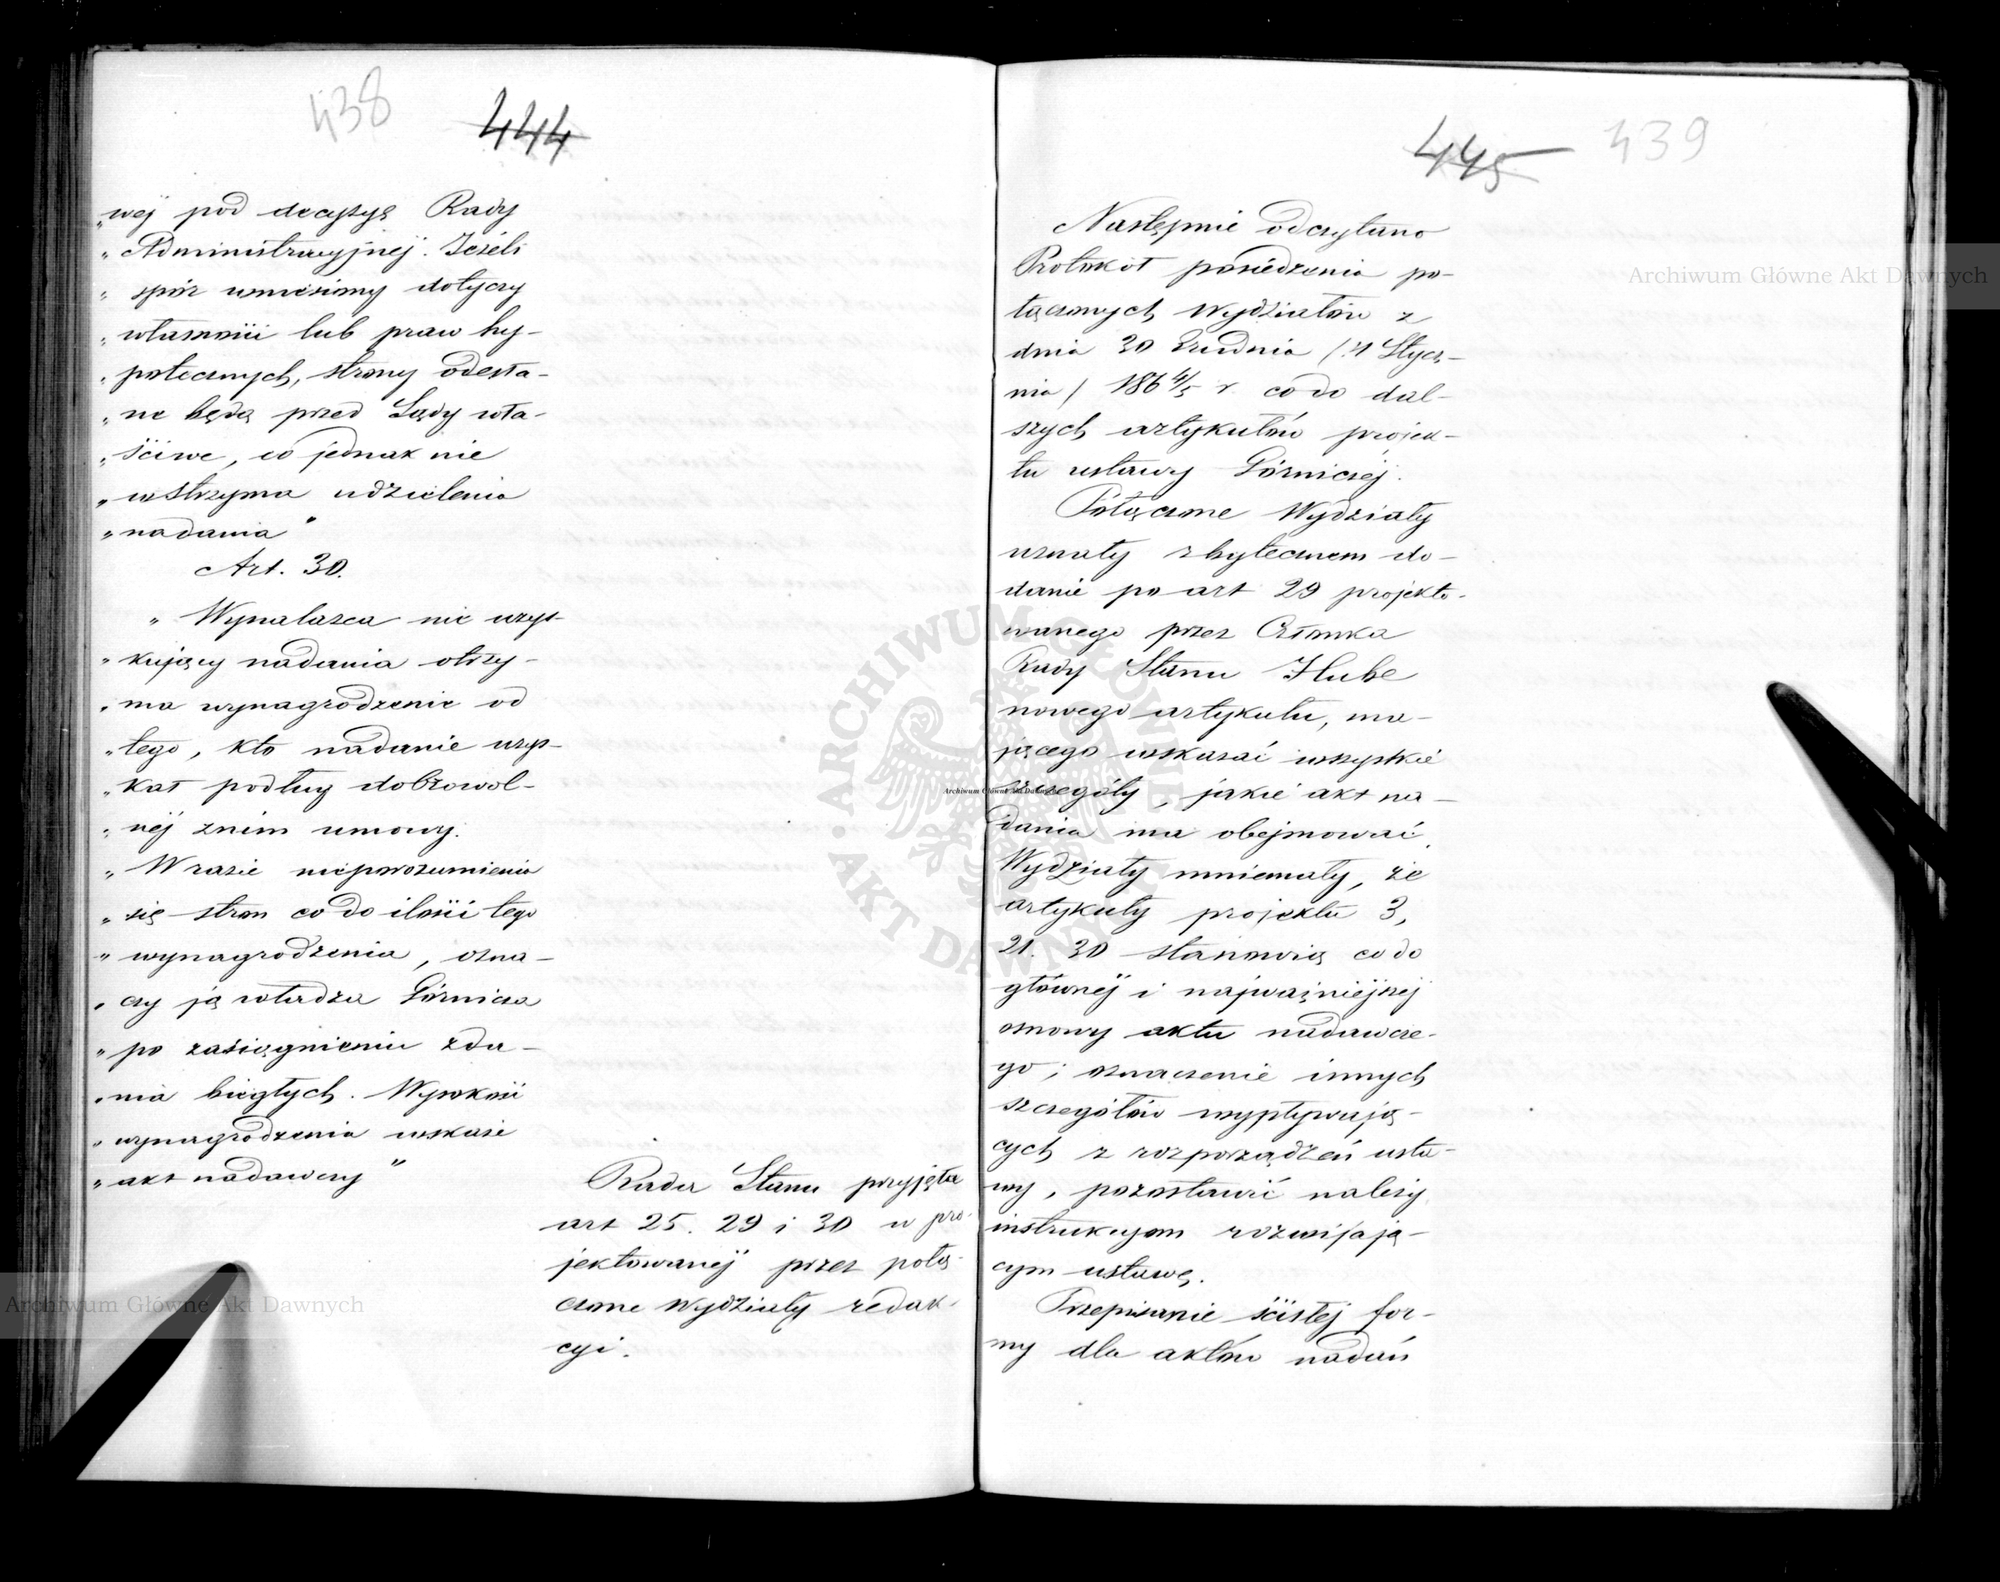 438 444
„wéj pod decyzyę Rady
„Administracyjnéj. Jeżeli
„spór wniesiony dotyczy
„własności lub praw hy-
„potecznych, strony odesła-
„ne będą przed Sądy wła-
„ściwe, co jednak nie
„wstrzyma udzielenia
„nadania"
Art. 30.
„Wynalazca nie uzys-
„kujący nadania otrzy-
„ma wynagrodzenie od
„tego, kto nadanie uzys-
„kał podług dobrowol-
„néj z nim umowy.
„W razie nieporozumienia
„się stron co do ilości tego
„wynagrodzenia, ozna-
„czy ją władza Górnicza
„po zasiągnieniu zda-
„nia biegłych. Wysokość
„wynagrodzenia wskaże
„akt nadawczy"
Rada Stanu przyjęła
art 25. 29 i 30 w pro-
jektowanéj przez połą-
czone Wydziały redak-
cyi.
445 439
Następnie odczytano
Protokół posiedzenia po-
łączonych Wydziałów z
dnia 30 Grudnia (11 Stycz-
nia) 186 4/5 r. co do dal-
szych artykułów projek-
tu ustawy Górniczej.
Połączone Wydziały
uznały zbytecznem do-
danie po art 29 projekto-
wanego przez Członka
Rady Stanu Hube
nowego artykułu, ma-
jącego wskazać wszystkie
szczegóły, jakie akt na-
dania ma obejmować.
Wydziały mniemały, że
artykuły projektu 3,
21. 30 stanowią co do
głównéj i najważniejszej
osnowy aktu nadawcze-
go; oznaczenie innych
szczegółów wypływają-
cych z rozporządzeń usta-
wy, pozostawić należy
instrukcyom rozwijają-
cym ustawę.
Przepisanie ścisłej for-
my dla aktów nadań
Archiwum Główne Akt Dawnych
Archiwum Główne Akt Dawnych
Archiwum Główne Akt Dawnych
ARCHIWUM GŁÓWNE AKT DAWNYCH